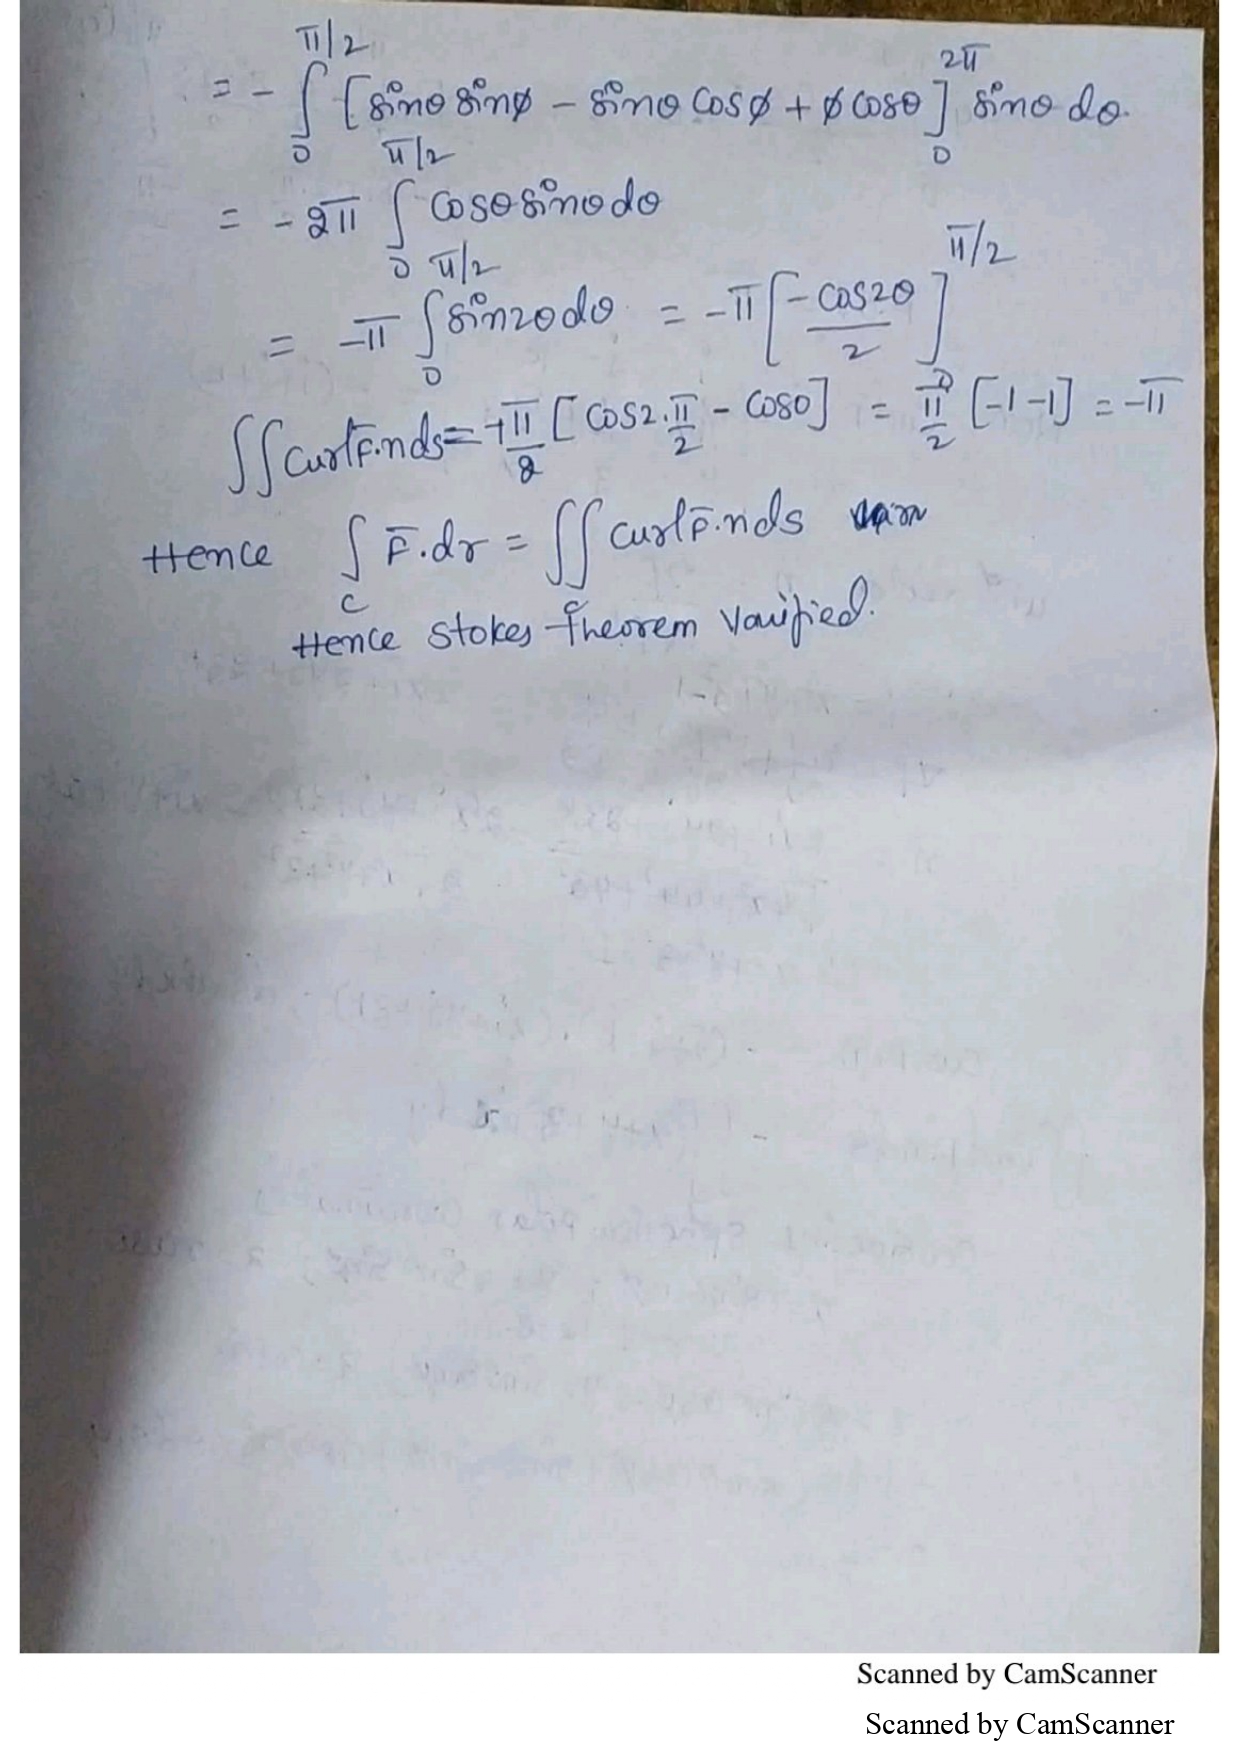 = - ∫₀^{π/2} [sinθ sinφ - sinθ cosφ + φ cosθ]₀^{2π} sinθ dθ.
= - 2π ∫₀^{π/2} cosθ sinθ dθ
= -π ∫₀^{π/2} sin2θ dθ = -π [-cos2θ/2]₀^{π/2}
∬ curl F̄.n ds = +π/2 [cos2.π/2 - cos0] = π/2 [-1-1] = -π
Hence ∫_C F̄.dr = ∬_C curl F̄.n ds
Hence stokes theorem varified.
Scanned by CamScanner
Scanned by CamScanner